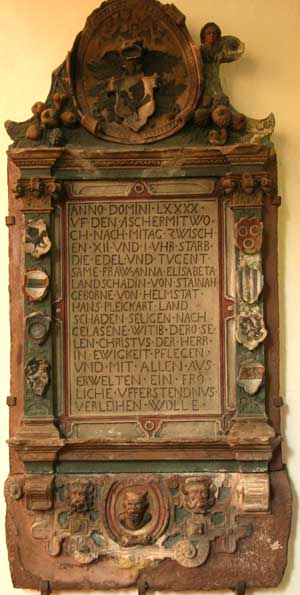 ANNO · DOMINI · LXXXX ·
VF DEN · ASCHERMITWO
CH · NACH · MITAG · ZWISCH
EN · XII · VND · I · VHR · STARB ·
DIE · EDEL · VND · TVGENT
SAME · FRAW · ANNA · ELISABETA
LANDSCHADIN · VON · STAINAH
GEBORNE · VON · HELMSTAT ·
HANS · PLEICKART · LAND
SCHADEN · SELIGEN · NACH
GELASENE · WITIB · DERO · SE
LEN · CHRISTVS · DER · HERR ·
IN · EWIGKEIT · PFLEGEN ·
VND · MIT · ALLEN · AVS
ERWELTEN · EIN · FRÖ
LICHE · VFFERSTENDNVS ·
VERLEIHEN · WOLLE ·